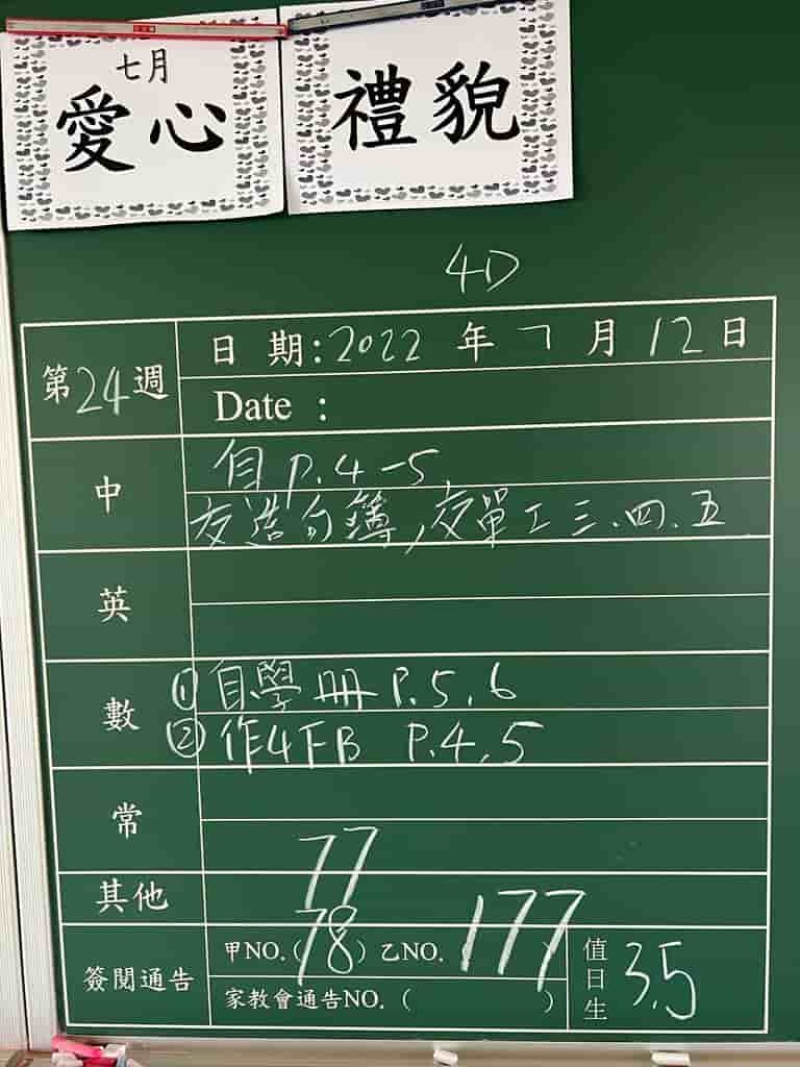 七月
愛心
禮貌
4D
第24週
日 期:2022 年 7 月 12 日
Date :
中
自 P.4-5,
交造句簿,交單工三.四.五
英
數
① 自學冊 P.5,6
② 作4下B P.4,5
常
其他
77
簽閱通告
甲NO.(78) 乙NO. 177 )
家教會通告NO. ( )
值日生
3,5